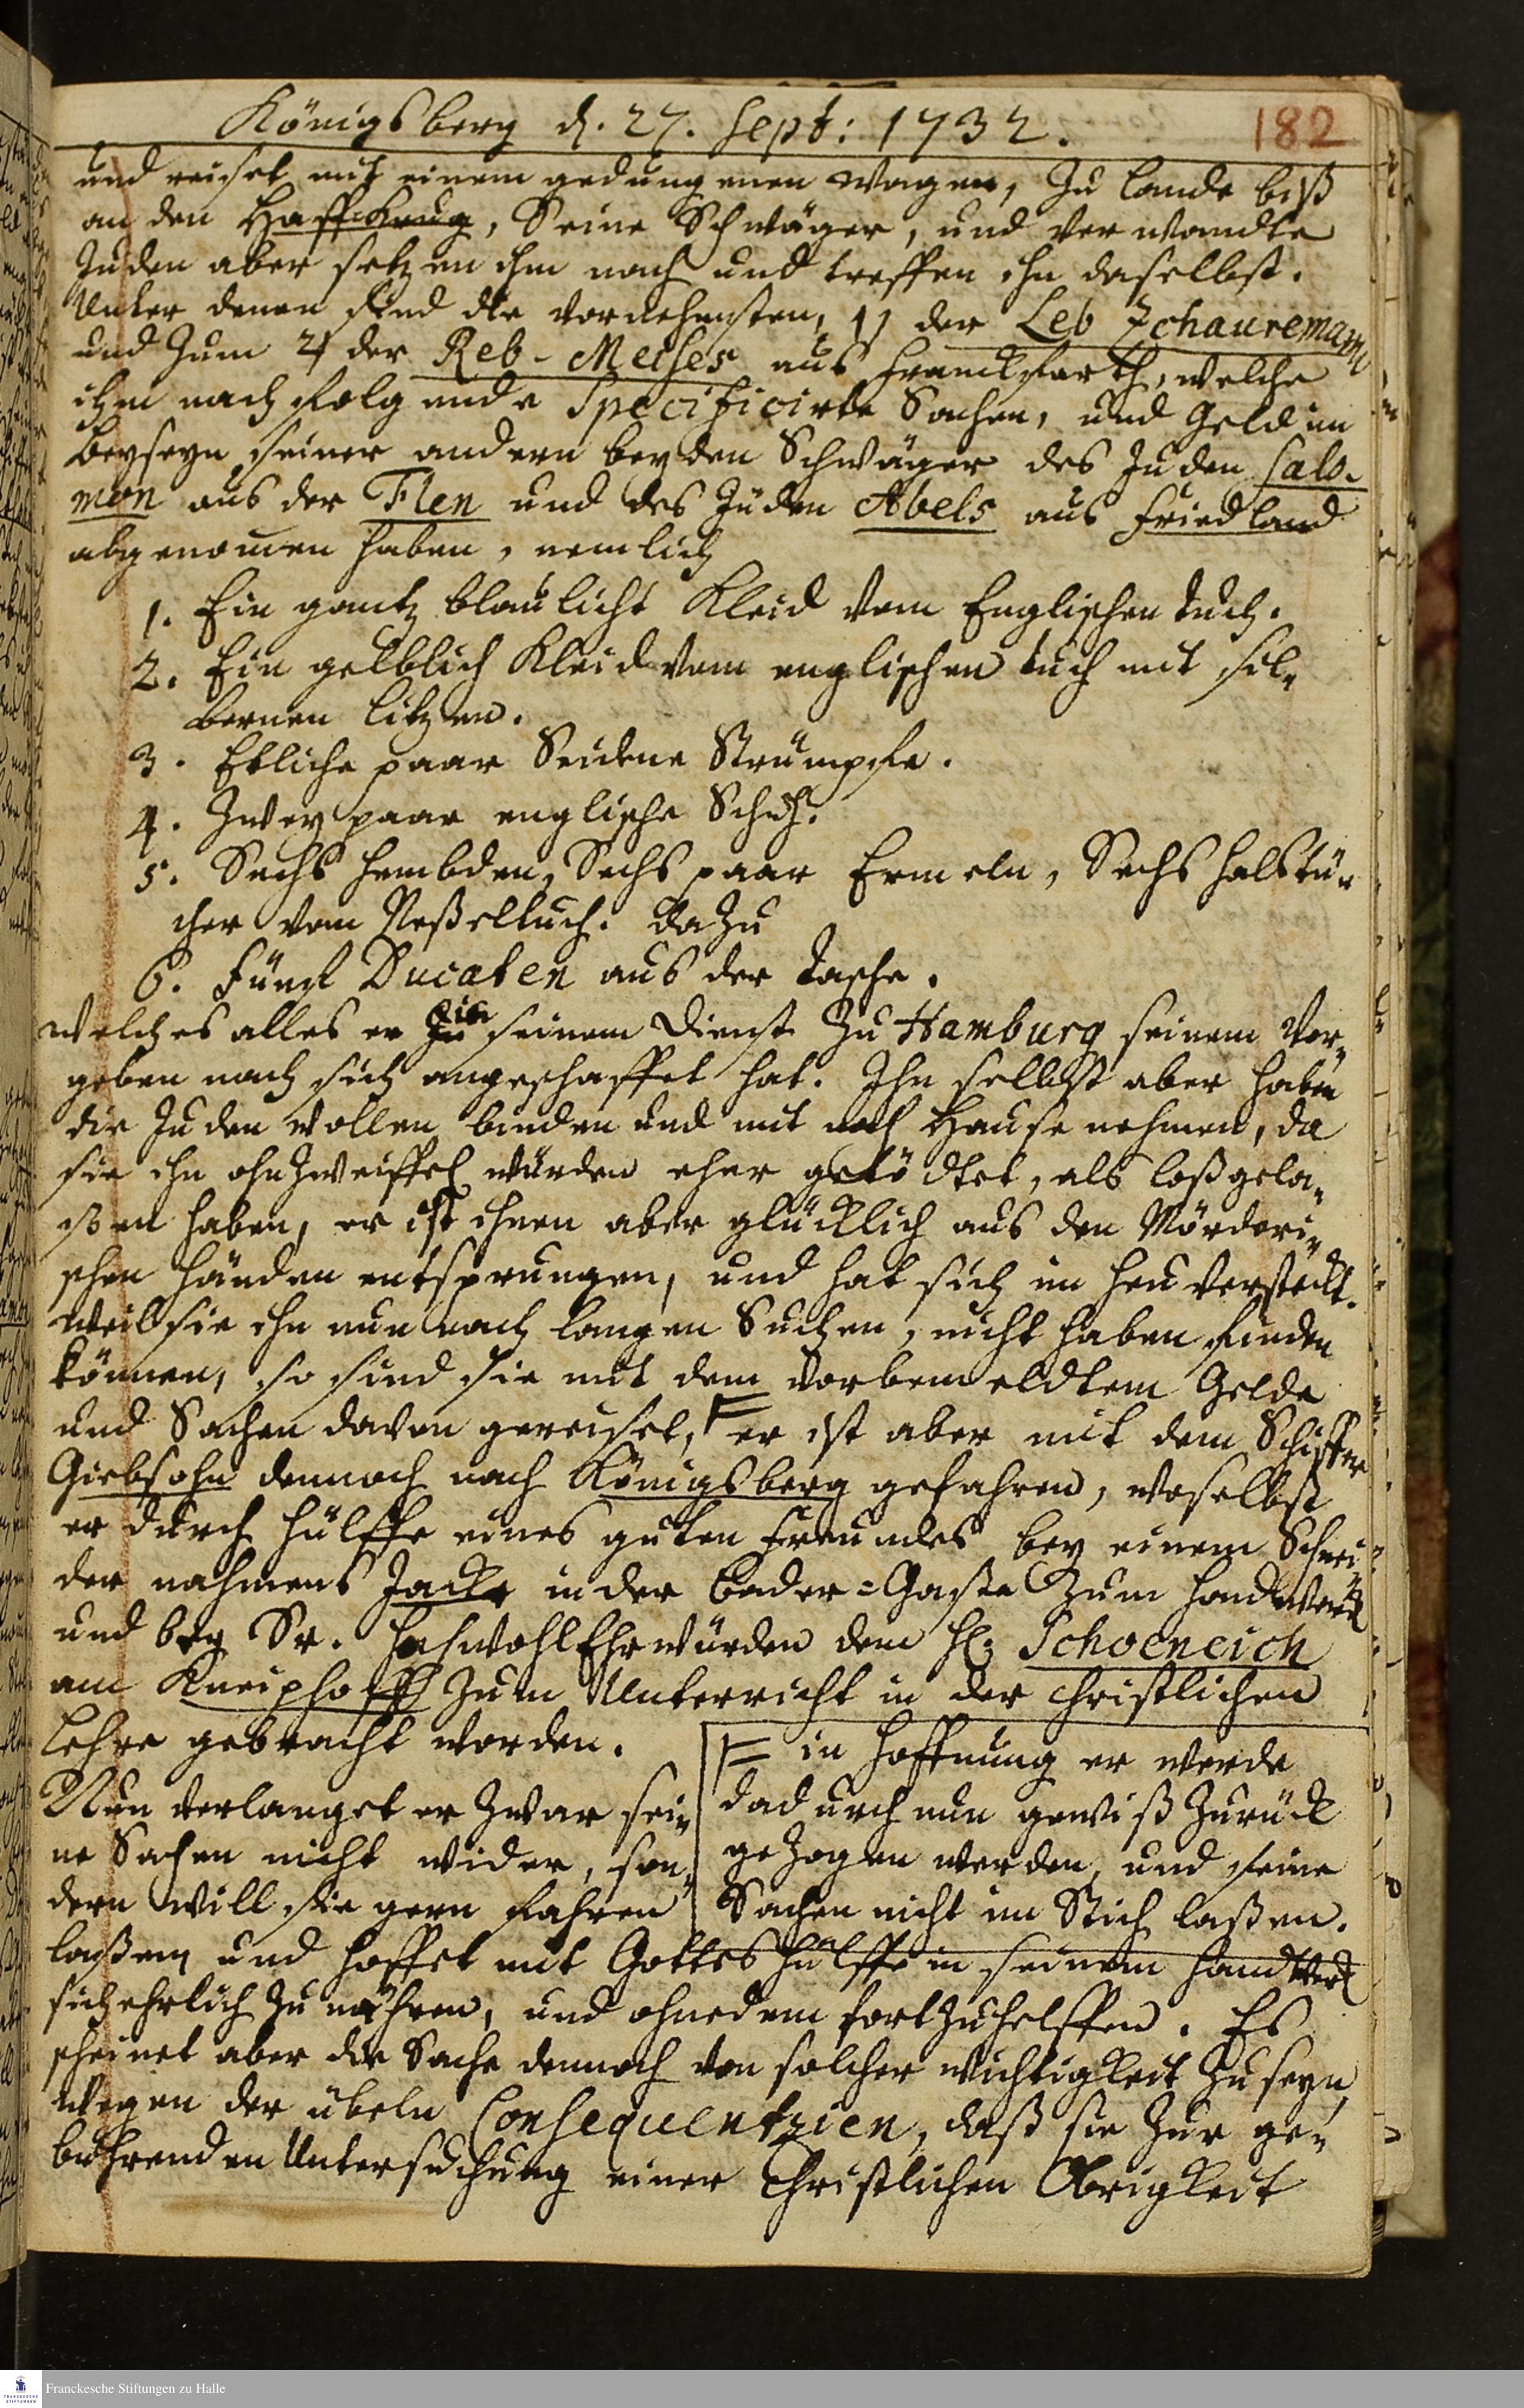 Königsberg d. 27. Sept: 1732.
182
und reiset mit einem gedungenen Wagen, zu Lande biß
an den Haffkrug, Seine Schwäger, und Verwandte
Juden aber setzen ihm nach und treffen ihn daselbst.
Unter denen sind die vornehmsten, 1) der Leb Zchauremann
und zum 2) der Reb-Meises aus Franckfarth, welche
ihm nach folgende Specificirte Sachen, und Geld im
beyseyn seiner andern beyden Schwäger des Juden Salo-
mon aus der Flen und des Juden Abels aus Friedland
abgenomen haben, nemlich
1. Ein gantz blaulicht Kleid vom Englischen tuch.
2. Ein gelblich Kleid vom englischen tuch mit sil-
bernen litzen.
3. Etliche paar Seidene Strümpfe.
4. Zwey paar englische Schuh.
5. Sechs Hembden, Sechs paar Ermeln, Sechs halstü-
cher vom Neßeltuch. dazu
6. Fünf Ducaten aus der Tasche.
welches alles er in seinem Dienst zu Hamburg seinem Vor-
geben nach sich angeschaffet hat. Ihn selbst aber haben
die Juden wollen binden und mit nach Hause nehmen, da
sie ihn ohn Zweiffel würden eher getödtet, als loßgela-
ßen haben, er ist ihnen aber glücklich aus den Mörderi-
schen Händen entsprungen, und hat sich im Heu versteckt.
Weil sie ihn nun nach langen Suchen, nicht haben finden
können, so sind sie mit dem vorbemeldtem Gelde
und Sachen davon gereiset, F er ist aber mit dem Schiffer
Giebsohn dennoch nach Königsberg gefahren, woselbst
er durch hülffe eines guten Freundes bey einem Schnei-
der nahmens Jacke in der Bader-Gaße zum Handwerck
und bey Sr. HochwohlEhrwürden dem H. Schoeneich
am Kneiphoff zum Unterricht in der christlichen
Lehre gebracht worden.
F in Hoffnung er werde
dadurch nun gewiß zurück
gezogen werden, und seine
Sachen nicht im Stich laßen.
Nun verlanget er zwar sei-
ne Sachen nicht wider, son-
dern will sie gern fahren
laßen und hoffet mit Gottes hülffe in seinem Handwerck
sich ehrlich zu nähren, und ohnedem fortzuhelffen. Es
scheinet aber die Sache dennoch von solcher Wichtigkeit zu seyn,
wegen der übeln Consequentzien, daß sie zur ge-
bührenden Untersuchung einer Christlichen Obrigkeit
Franckesche Stiftungen zu Halle